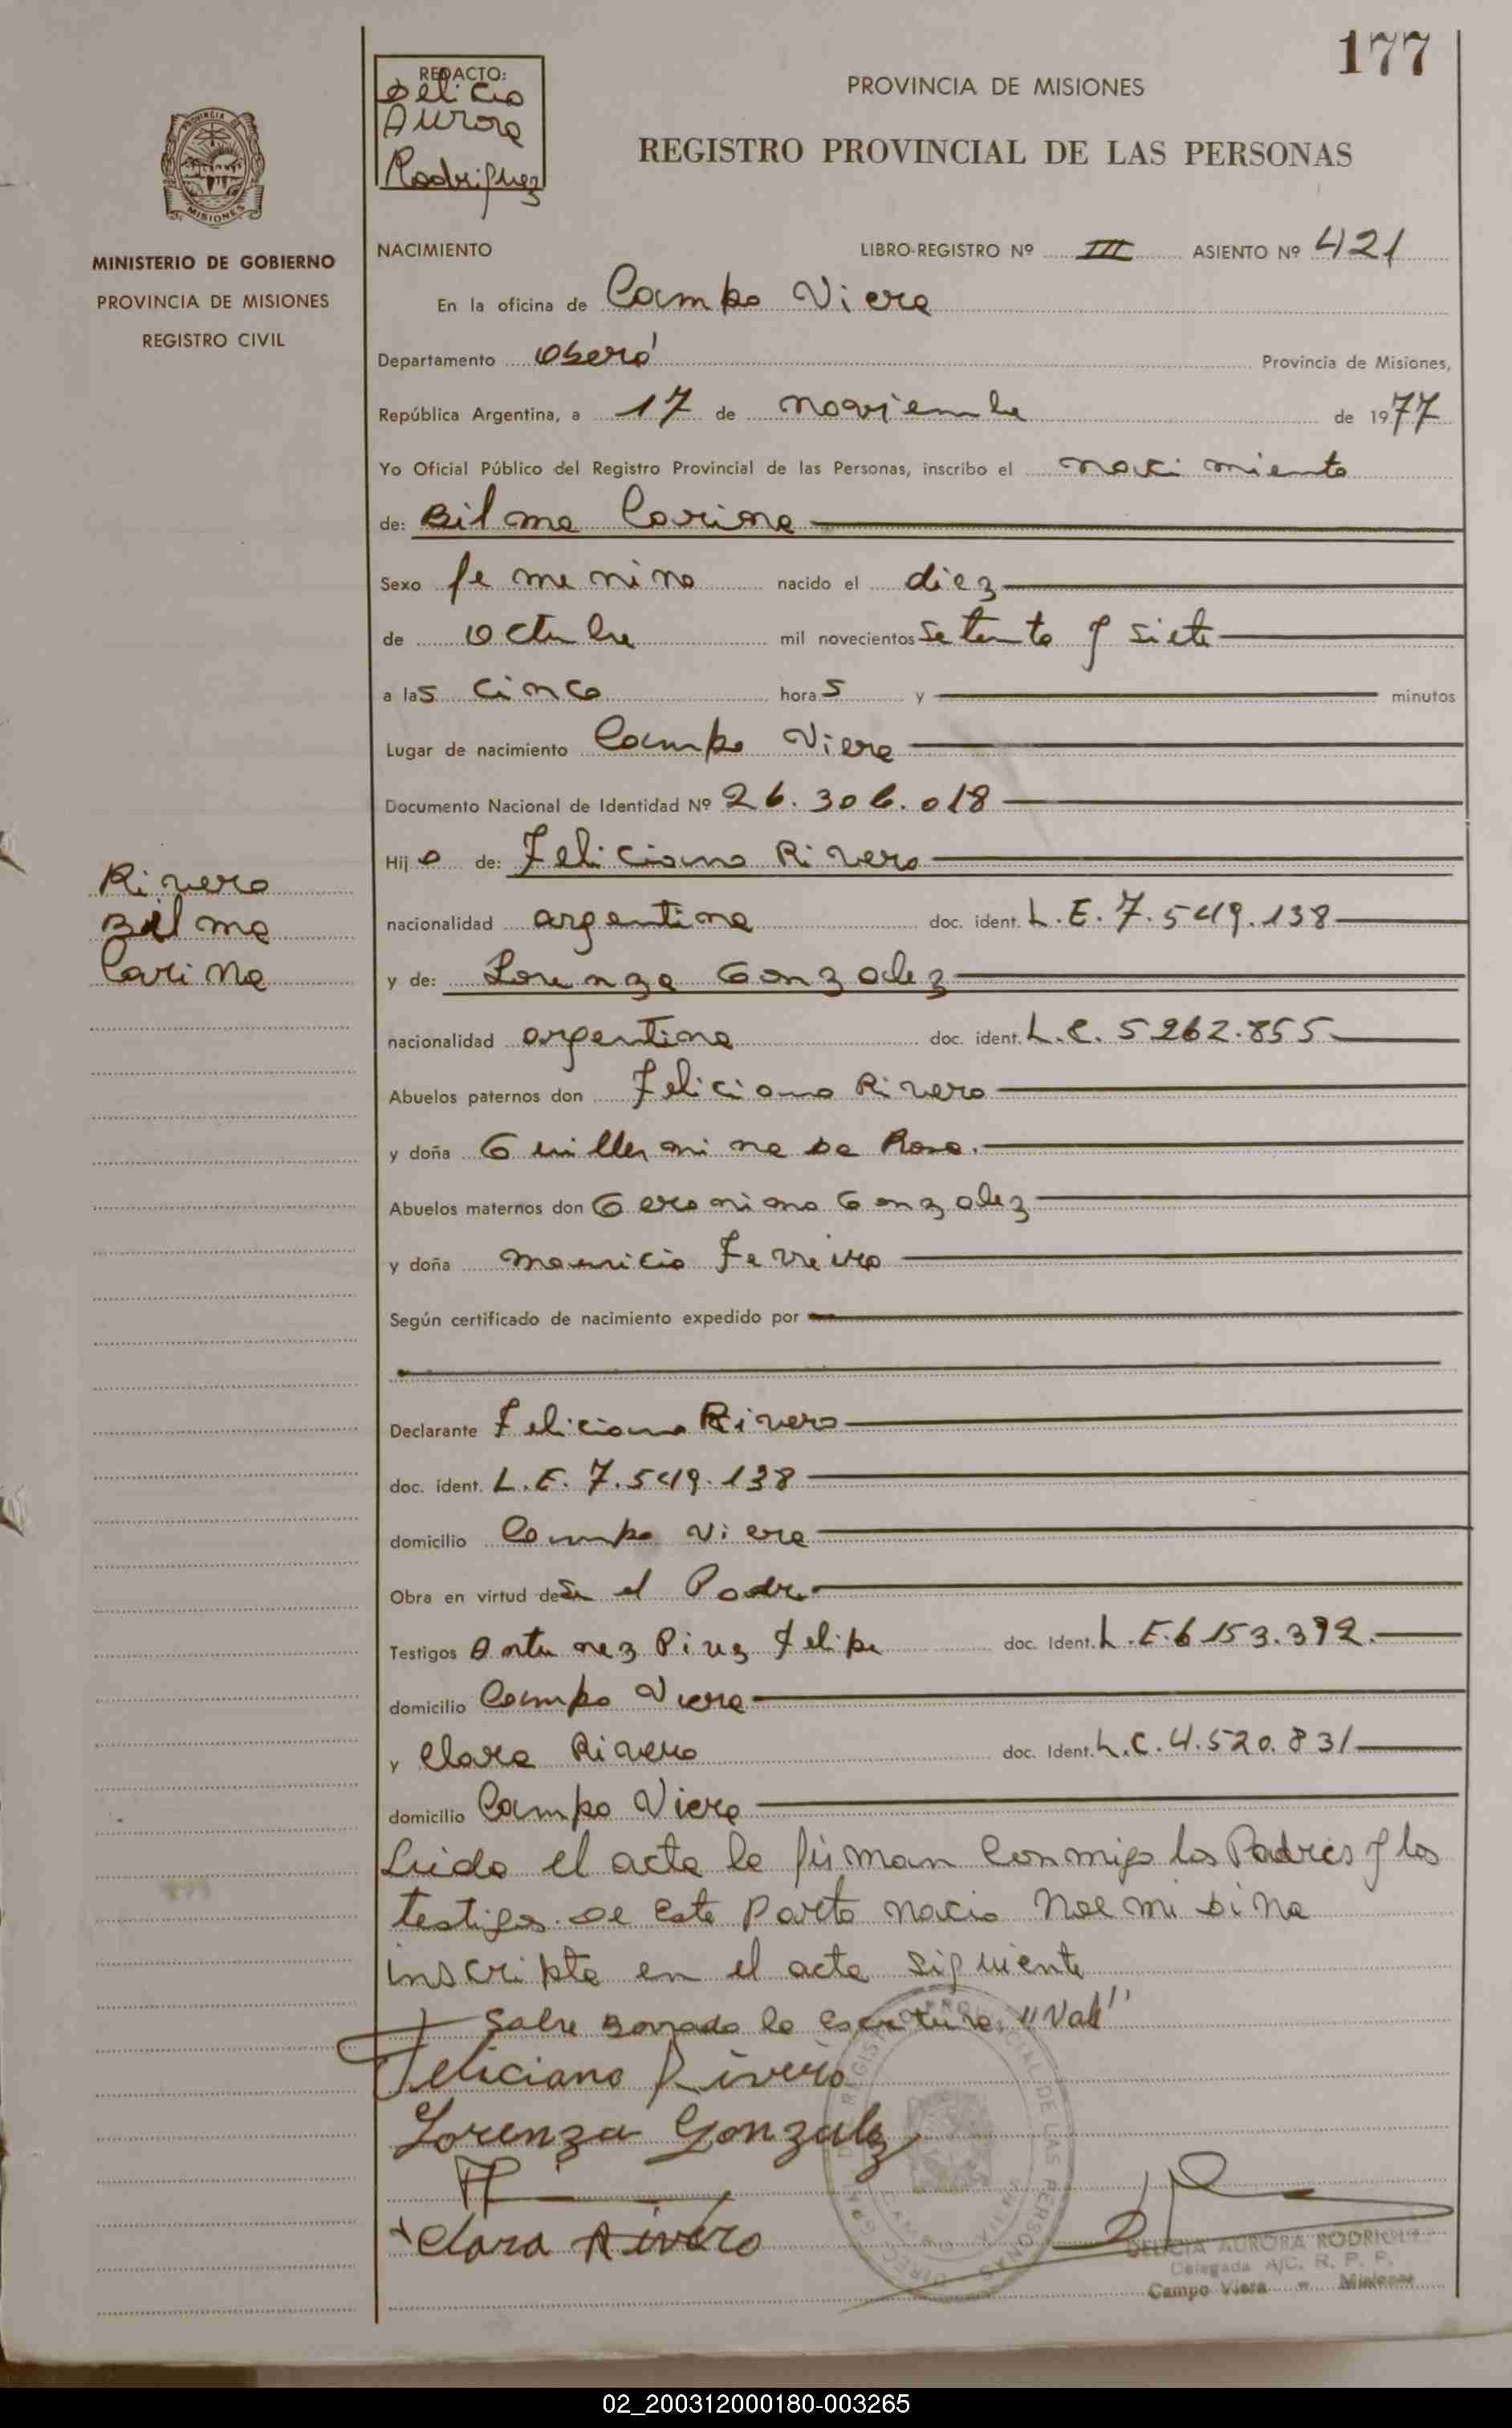 177
REDACTO:
Delicia
Aurora
Rodriguez
PROVINCIA DE MISIONES
REGISTRO PROVINCIAL DE LAS PERSONAS
MISIONES
MINISTERIO DE GOBIERNO
PROVINCIA DE MISIONES
REGISTRO CIVIL
NACIMIENTO LIBRO-REGISTRO Nº III ASIENTO Nº 421
En la oficina de Campo Viera
Departamento Oberá Provincia de Misiones,
República Argentina, a 17 de noviembre de 1977
Yo Oficial Público del Registro Provincial de las Personas, inscribo el nacimiento
de: Bilma Carina
Sexo femenino nacido el diez
de octubre mil novecientos setenta y siete
a las cinco horas y minutos
Lugar de nacimiento Campo Viera
Documento Nacional de Identidad Nº 26.306.018
Hija de: Feliciano Rivero
Rivero
Bilma
Carina
nacionalidad argentina doc. ident. L.E. 7.549.138
y de: Lorenza Gonzalez
nacionalidad argentina doc. ident. L.C. 5262.855
Abuelos paternos don Feliciano Rivero
y doña Guillermina Da Rosa.
Abuelos maternos don Geronimo Gonzalez
y doña Mauricia Ferreira
Según certificado de nacimiento expedido por
Declarante Feliciano Rivero
doc. ident. L.E. 7.549.138
domicilio Campo Viera
Obra en virtud de Ser el Padre
Testigos Antunez Pirez Felipe doc. Ident. L.E. 6153.392.
domicilio Campo Viera
y Clara Rivero doc. Ident. L.C. 4.520.831
domicilio Campo Viera
Leida el acta la firman conmigo los Padres y los
testigos. De este parto nacio Noemi Dina
inscripta en el acta siguiente
Sobre borrado lo escritura "Vale"
Feliciano Rivero
Lorenza Gonzalez
Clara Rivero
DELICIA AURORA RODRIGUEZ
Delegada A/C. R. P. P.
Campo Viera - Misiones
02_200312000180-003265